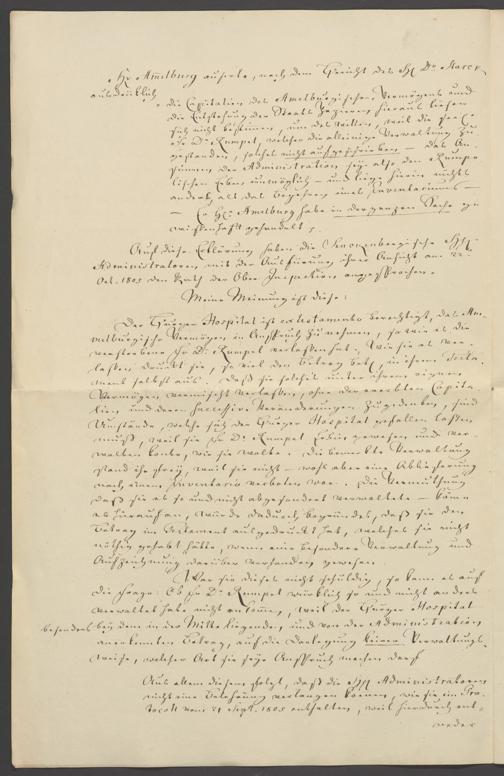 Hr. Amelburg äuserte, nach dem Bericht des H. Dr. Starck
ausdrücklich
die Capitalien des Amelburgischen Vermögens und
die Entstehung der Staats Papiere hieraus liesen
sich nicht bestimmen, um des willen, weil die seel.
Fr. Dr. Rumpel, welcher die alleinige Verwaltung zu
gestanden, solches nicht aufgeschrieben — das An-
sinnen der Administration seye also den Rumpe
lischen Erben unmöglich — und liege hierin nichts
anders, als das Begehren eines Inventariums —
— Er Hr. Amelburg habe in der ganzen Sache ge
wissenhaft gehandelt.
Auf diese Erklärung haben die Knorrenbergische HH.
Administratoren, mit der Ausführung ihrer Ansicht am 22.
Oct. 1805 den Rath der Ober Inspection angesprochen.
Meine Meinung ist diese:
Der Hospital ist ex testamento berechtigt, das Am-
melburgische Vermögen in Anspruch zu nehmen, so wie es die
verstorbene Fr. Dr. Rumpel verlassen hat. Wie sie es ver-
lassen, druckt sie, so viel den Betrag betr., in ihrem Testa-
ment selbst aus. Daß sie solches unter ihrem eignen
Vermögen vermischt verlassen, ohne der ererbten Capita-
lien und deren successive Veränderungen zu gedenken, sind
Umstände, welche sich der Hospital gefallen lassen
muß, weil sie Fr. Dr. Rumpel Erbin gewesen und ver-
walten konte, wie sie wolte. Die bemerkte Verwaltung
stand ihr frey, weil sie nicht — wohl aber eine Ablieferung
nach einem Inventario verboten war. Die Vermuthung
daß sie es so und nicht abgesondert verwaltete — käme
es hierauf an, würde dadurch begründet, daß sie den
Betrag im Testament ausgedruckt hat, welches sie nicht
nöthig gehabt hätte, wenn eine besondere Verwaltung und
Aufzeichnung darüber vorhanden gewesen.
War sie dieses nicht schuldig, so kann es auf
die Frage: Ob Fr. Dr. Rumpel würklich so und nicht anders
verwaltet habe nicht ankommen, weil der Hospital
besonders bey dem in der Mitte liegenden, und von der Administration
anerkannten Betrag, auf die Darlegung keiner Verwaltungs-
weise, welcher Art sie seye Anspruch machen darf.
Aus allem diesem folgt, daß die HH. Administratoren
nicht eine Belehrung verlangen können, wie sie im Pro-
tocoll vom 21 Sept. 1805 enthalten, weil hierdurch ent-
weder